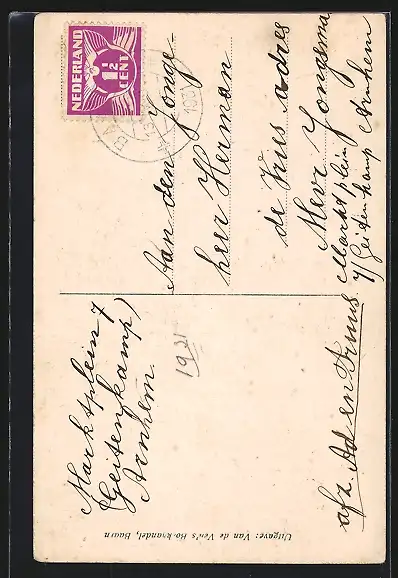 NEDERLAND
1½
CENT
BAA
Aan den Jonge-
heer Herman
de Vries adres
Mevr Jongsma
Marktplein
7 Geitenkamp Arnhem
Marktplein 7
(Geitenkamp)
Arnhem.
1921
afz. Ad en Truus
Uitgave: Van de Ven's Bo khandel, Baarn